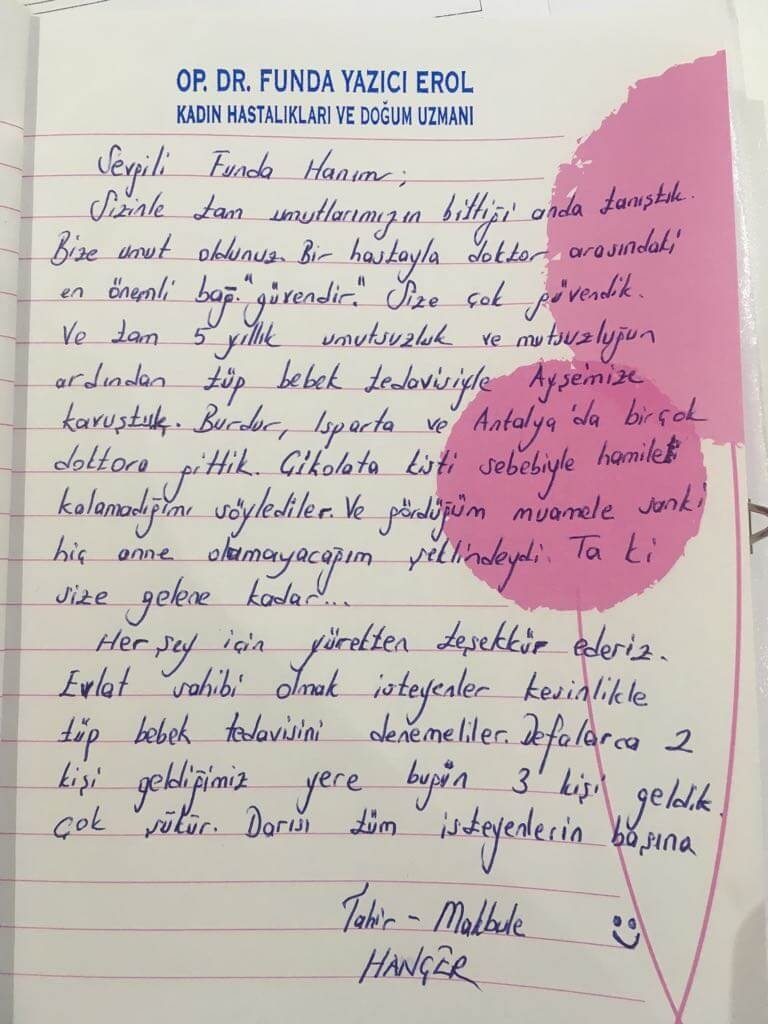 OP. DR. FUNDA YAZICI EROL
KADIN HASTALIKLARI VE DOĞUM UZMANI
Sevgili Funda Hanım;
Sizinle tam umutlarımızın bittiği anda tanıştık.
Bize umut oldunuz. Bir hastayla doktor arasındaki
en önemli bağ "güvendir." Size çok güvendik.
Ve tam 5 yıllık umutsuzluk ve mutsuzluğun
ardından tüp bebek tedavisiyle Ayşemize
kavuştuk. Burdur, Isparta ve Antalya'da birçok
doktora gittik. Çikolata kisti sebebiyle hamile
kalamadığımı söylediler. Ve gördüğüm muamele sanki
hiç anne olamayacağım şeklindeydi. Ta ki
size gelene kadar...
Her şey için yürekten teşekkür ederiz.
Evlat sahibi olmak isteyenler kesinlikle
tüp bebek tedavisini denemeliler. Defalarca 2
kişi geldiğimiz yere bugün 3 kişi geldik
çok şükür. Darısı tüm isteyenlerin başına
Tahir - Makbule
HANÇER